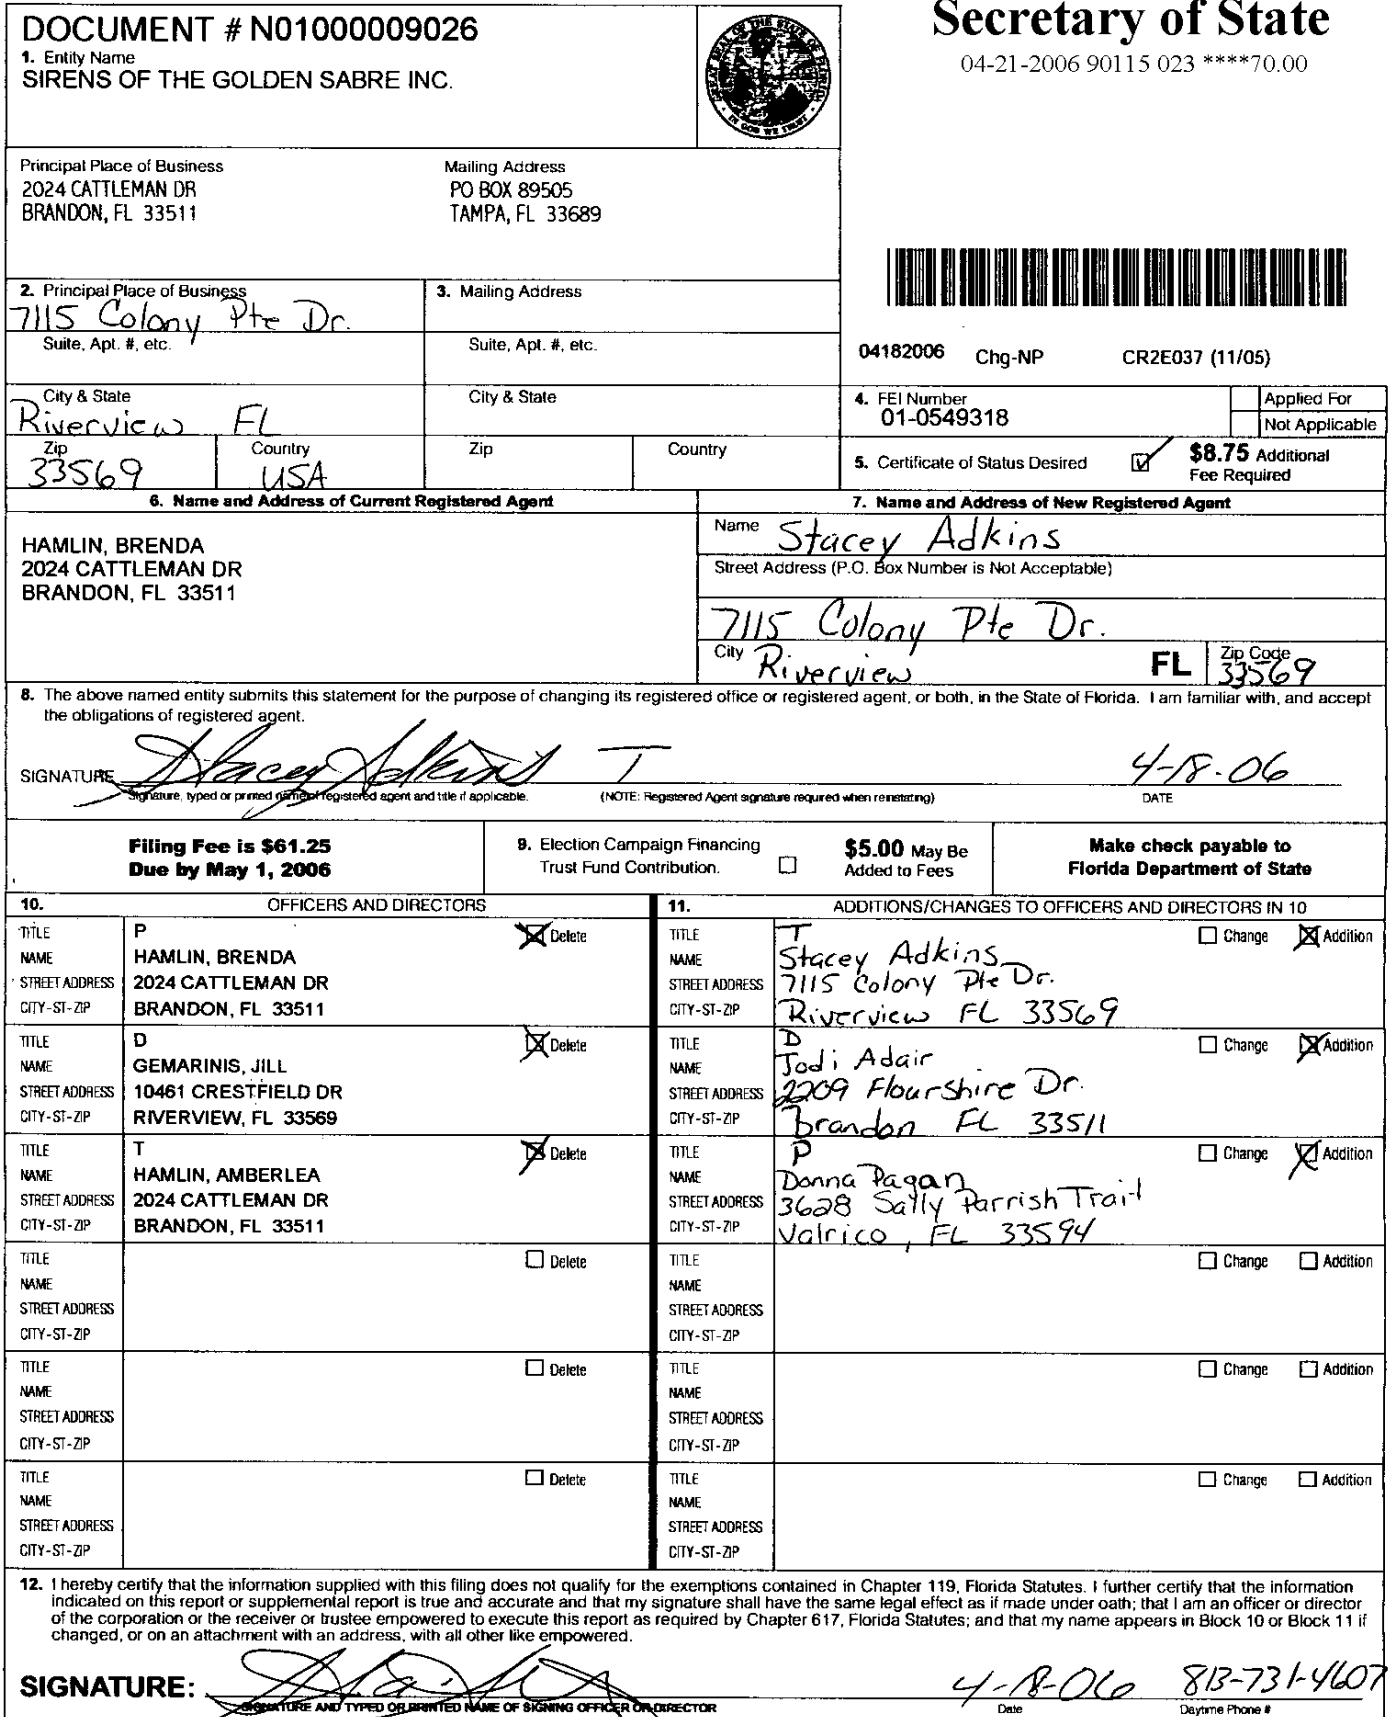 DOCUMENT # N01000009026
1. Entity Name
SIRENS OF THE GOLDEN SABRE INC.
Secretary of State
04-21-2006 90115 023 ****70.00
Principal Place of Business
2024 CATTLEMAN DR
BRANDON, FL 33511
Mailing Address
PO BOX 89505
TAMPA, FL 33689
2. Principal Place of Business
7115 Colony Pte Dr.
Suite, Apt. #, etc.
City & State
Riverview, FL
Zip
33569
Country
USA
3. Mailing Address
Suite, Apt. #, etc.
City & State
Zip
Country
04182006 Chg-NP CR2E037 (11/05)
4. FEI Number
01-0549318
Applied For
Not Applicable
5. Certificate of Status Desired
$8.75 Additional
Fee Required
6. Name and Address of Current Registered Agent
HAMLIN, BRENDA
2024 CATTLEMAN DR
BRANDON, FL 33511
7. Name and Address of New Registered Agent
Name Stacey Adkins
Street Address (P.O. Box Number is Not Acceptable)
7115 Colony Pte Dr.
City Riverview FL Zip Code 33569
8. The above named entity submits this statement for the purpose of changing its registered office or registered agent, or both, in the State of Florida. I am familiar with, and accept
the obligations of registered agent.
SIGNATURE Stacey Adkins T 4-18-06
Signature, typed or printed name of registered agent and title if applicable. (NOTE: Registered Agent signature required when reinstating) DATE
Filing Fee is $61.25
Due by May 1, 2006
9. Election Campaign Financing
Trust Fund Contribution.
$5.00 May Be
Added to Fees
Make check payable to
Florida Department of State
10. OFFICERS AND DIRECTORS
TITLE P Delete
NAME HAMLIN, BRENDA
STREET ADDRESS 2024 CATTLEMAN DR
CITY-ST-ZIP BRANDON, FL 33511
TITLE D Delete
NAME GEMARINIS, JILL
STREET ADDRESS 10461 CRESTFIELD DR
CITY-ST-ZIP RIVERVIEW, FL 33569
TITLE T Delete
NAME HAMLIN, AMBERLEA
STREET ADDRESS 2024 CATTLEMAN DR
CITY-ST-ZIP BRANDON, FL 33511
TITLE Delete
NAME
STREET ADDRESS
CITY-ST-ZIP
TITLE Delete
NAME
STREET ADDRESS
CITY-ST-ZIP
TITLE Delete
NAME
STREET ADDRESS
CITY-ST-ZIP
11. ADDITIONS/CHANGES TO OFFICERS AND DIRECTORS IN 10
TITLE T Change Addition
NAME Stacey Adkins
STREET ADDRESS 7115 Colony Pte Dr.
CITY-ST-ZIP Riverview FL 33569
TITLE D Change Addition
NAME Jodi Adair
STREET ADDRESS 2209 Flourshire Dr.
CITY-ST-ZIP Brandon FL 33511
TITLE P Change Addition
NAME Donna Pagan
STREET ADDRESS 3628 Sally Parrish Trail
CITY-ST-ZIP Valrico, FL 33594
TITLE Change Addition
NAME
STREET ADDRESS
CITY-ST-ZIP
TITLE Change Addition
NAME
STREET ADDRESS
CITY-ST-ZIP
TITLE Change Addition
NAME
STREET ADDRESS
CITY-ST-ZIP
12. I hereby certify that the information supplied with this filing does not qualify for the exemptions contained in Chapter 119, Florida Statutes. I further certify that the information
indicated on this report or supplemental report is true and accurate and that my signature shall have the same legal effect as if made under oath; that I am an officer or director
of the corporation or the receiver or trustee empowered to execute this report as required by Chapter 617, Florida Statutes; and that my name appears in Block 10 or Block 11 if
changed, or on an attachment with an address, with all other like empowered.
SIGNATURE: 4-18-06 813-731-4607
SIGNATURE AND TYPED OR PRINTED NAME OF SIGNING OFFICER OR DIRECTOR Date Daytime Phone #